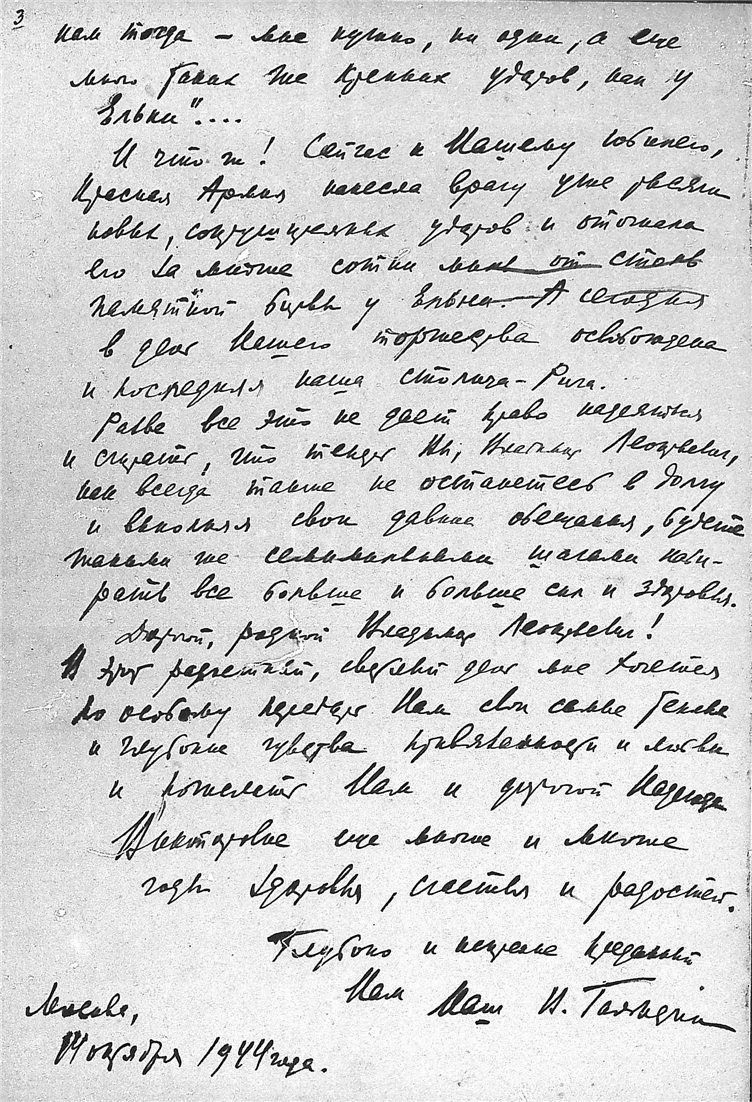 3
нам тогда – мне нужно, ни один, а еще
много таких же крепких ударов, как у
Ельни"....
И что ж! Сейчас к Вашему юбилею,
Красная Армия нанесла врагу уже десятки
новых, сокрушительных ударов и отогнала
его за многие сотни миль от столь
памятной битвы у Ельни. А сегодня
в день Вашего торжества освобождена
и последняя наша столица – Рига.
Разве все это не дает право надеяться
и считать, что теперь Вы, Владимир Леонтьевич,
как всегда также не останетесь в долгу
и выполняя свои давние обещания, будете
такими же семимильными шагами наби-
рать все больше и больше сил и здоровья.
Дорогой, родной Владимир Леонтьевич!
В этот радостный, светлый день мне хочется
по особому передать Вам свои самые теплые
и глубокие чувства привязанности и любви
и пожелать Вам и дорогой Надежде
Викторовне еще многие и многие
годы здоровья, счастья и радостей.
Глубоко и искренне преданный
Вам Ваш И.
Москва,
14 октября 1944 года.